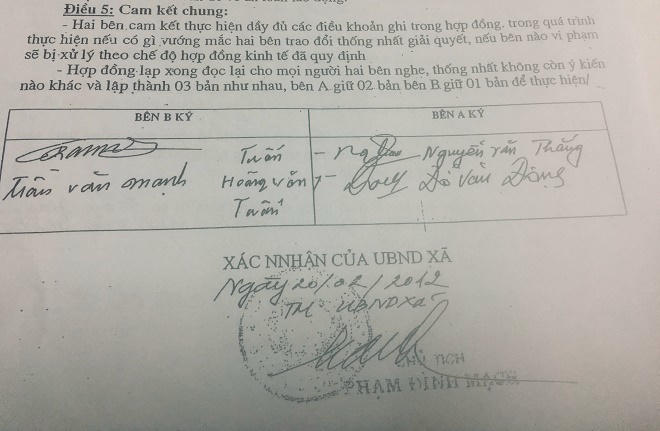 Điều 5: Cam kết chung:
- Hai bên cam kết thực hiện đầy đủ các điều khoản ghi trong hợp đồng. trong quá trình
thực hiện nếu có gì vướng mắc hai bên trao đổi thống nhất giải quyết, nếu bên nào vi phạm
sẽ bị xử lý theo chế độ hợp đồng kinh tế đã quy định
- Hợp đồng lạp xong đọc lại cho mọi người hai bên nghe, thống nhất không còn ý kiến
nào khác và lập thành 03 bản như nhau, bên A giữ 02 bản bên B giữ 01 bản để thực hiện/
BÊN B KÝ
BÊN A KÝ
Tuấn
Trần văn mạnh
Hoàng văn
Tuấn
- Nguyễn văn Thắng
- Đỗ Văn Động
XÁC NNHẬN CỦA UBND XÃ
Ngày 20/02/2012
TM UBND Xã
CHỦ TỊCH
PHẠM ĐÌNH